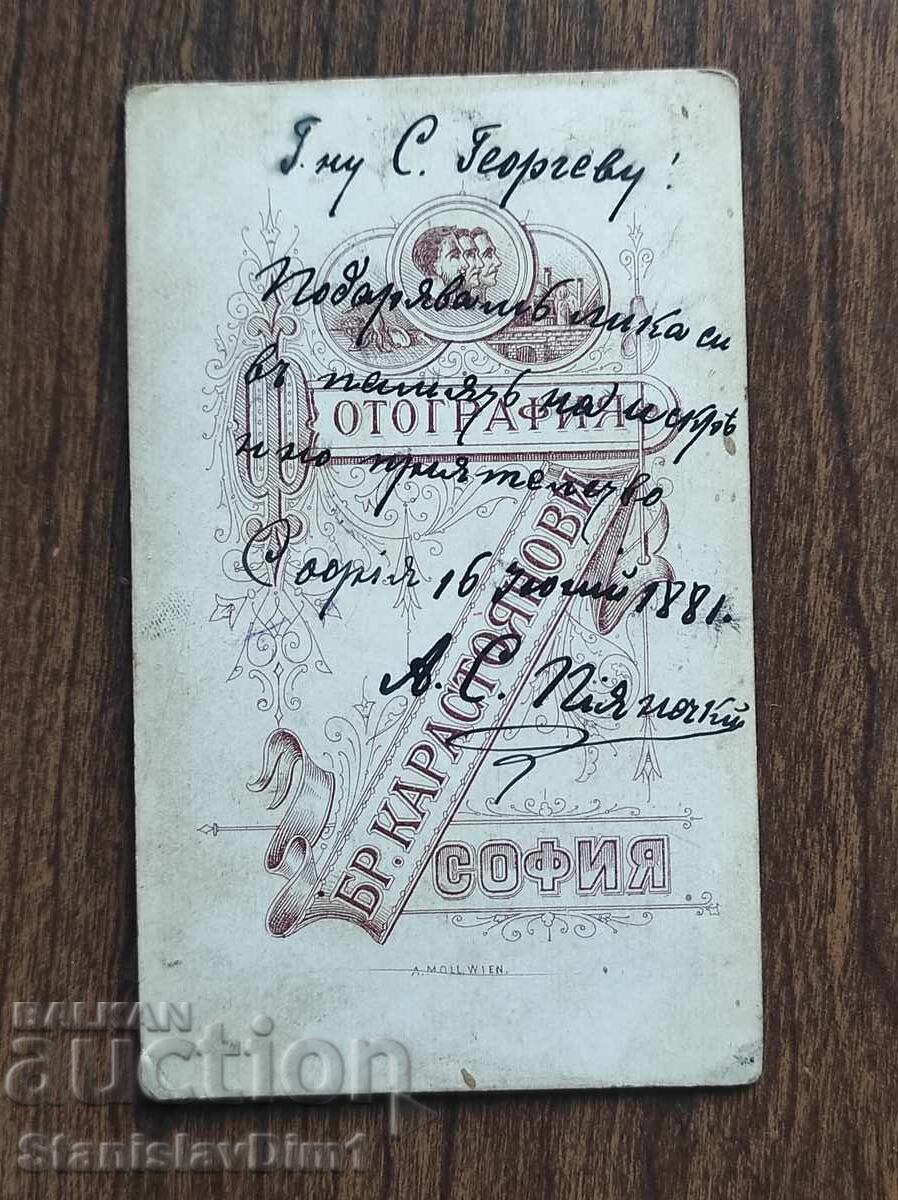 Г. ну С. Георгеву!
Подарявамъ лика си
въ память на искрѣ
нно приятелство
София 16 Юний 1881.
А. С.
ФОТОГРАФИЯ
БР. КАРАСТОЯНОВИ
СОФИЯ
A. MOLL WIEN.
BALKAN
auction
StanislavDim1